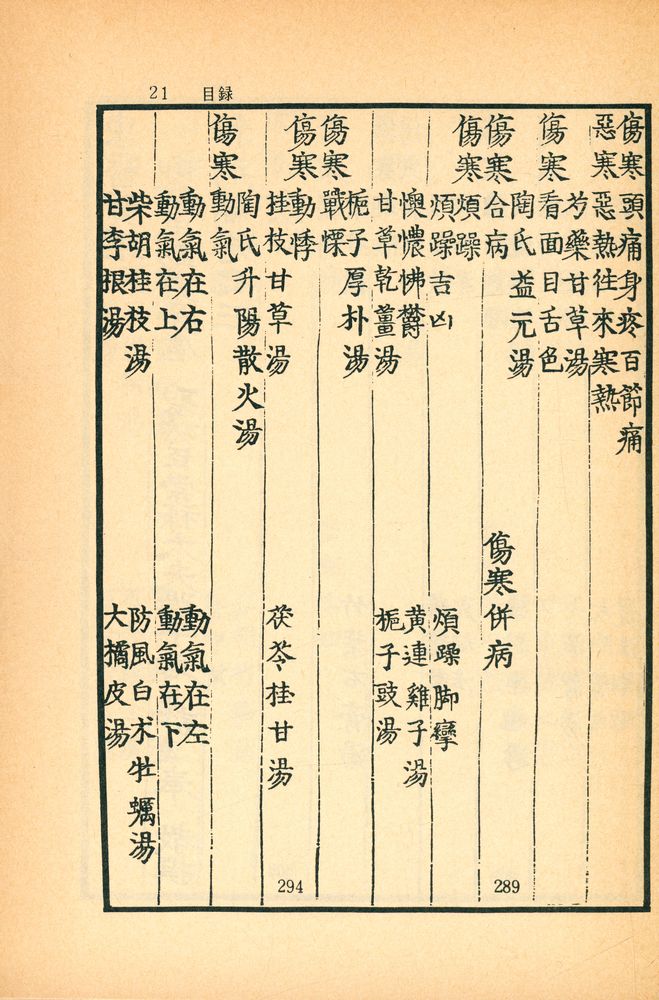 21 目録
傷寒頭痛身疼百節痛
惡寒惡熱往來寒熱
芍藥甘草湯
傷寒看面目舌色
陶氏益元湯
傷寒合病 傷寒併病 289
傷寒煩躁
煩躁吉凶 煩躁脚攣
懊憹怫鬱 黄連雞子湯
甘草乾薑湯 梔子豉湯
梔子厚朴湯
傷寒戰慄
傷寒動悸
桂枝甘草湯 茯苓桂甘湯 294
陶氏升陽散火湯
傷寒動氣
動氣在右 動氣在左
動氣在上 動氣在下
柴胡桂枝湯 防風白术牡蠣湯
甘李根湯 大橘皮湯